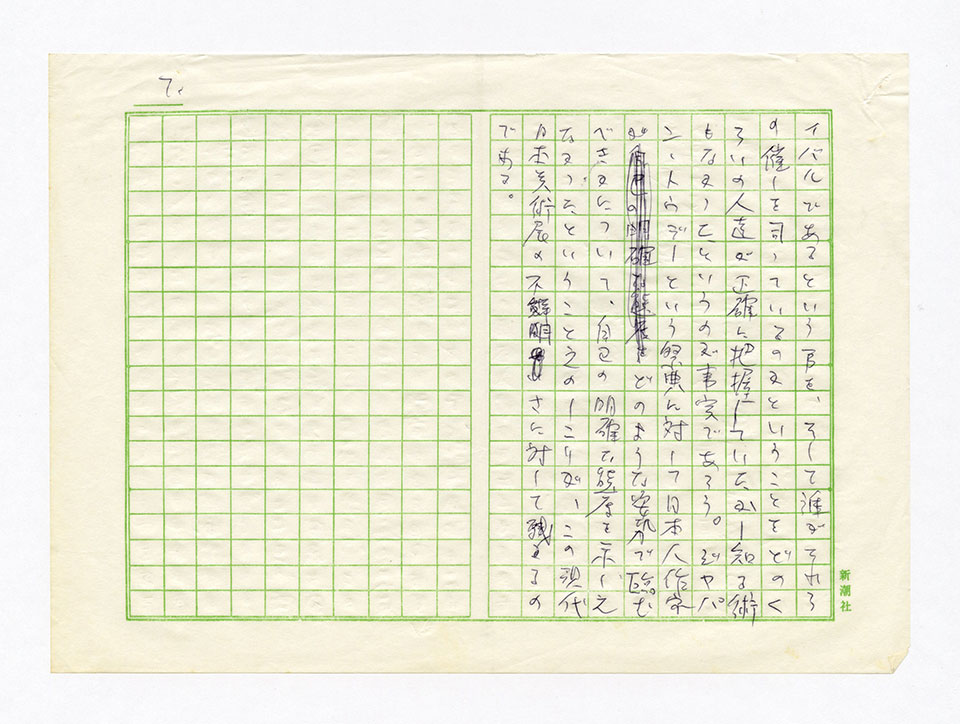 7.
イバルであるという事を、そして誰がそれら
の催しを司っているのかということをどのく
らいの人達が正確に把握していたか知る術
もなかったというのが事実であろう。ジャパ
ン・トウデーという祭典に対して日本人作家
がどのような姿勢で臨む
べきかについて、自己の明確な態度を示しえ
なかったということえのしこりが、この現代
日本美術展の不鮮明さに対して残るの
である。
新潮社